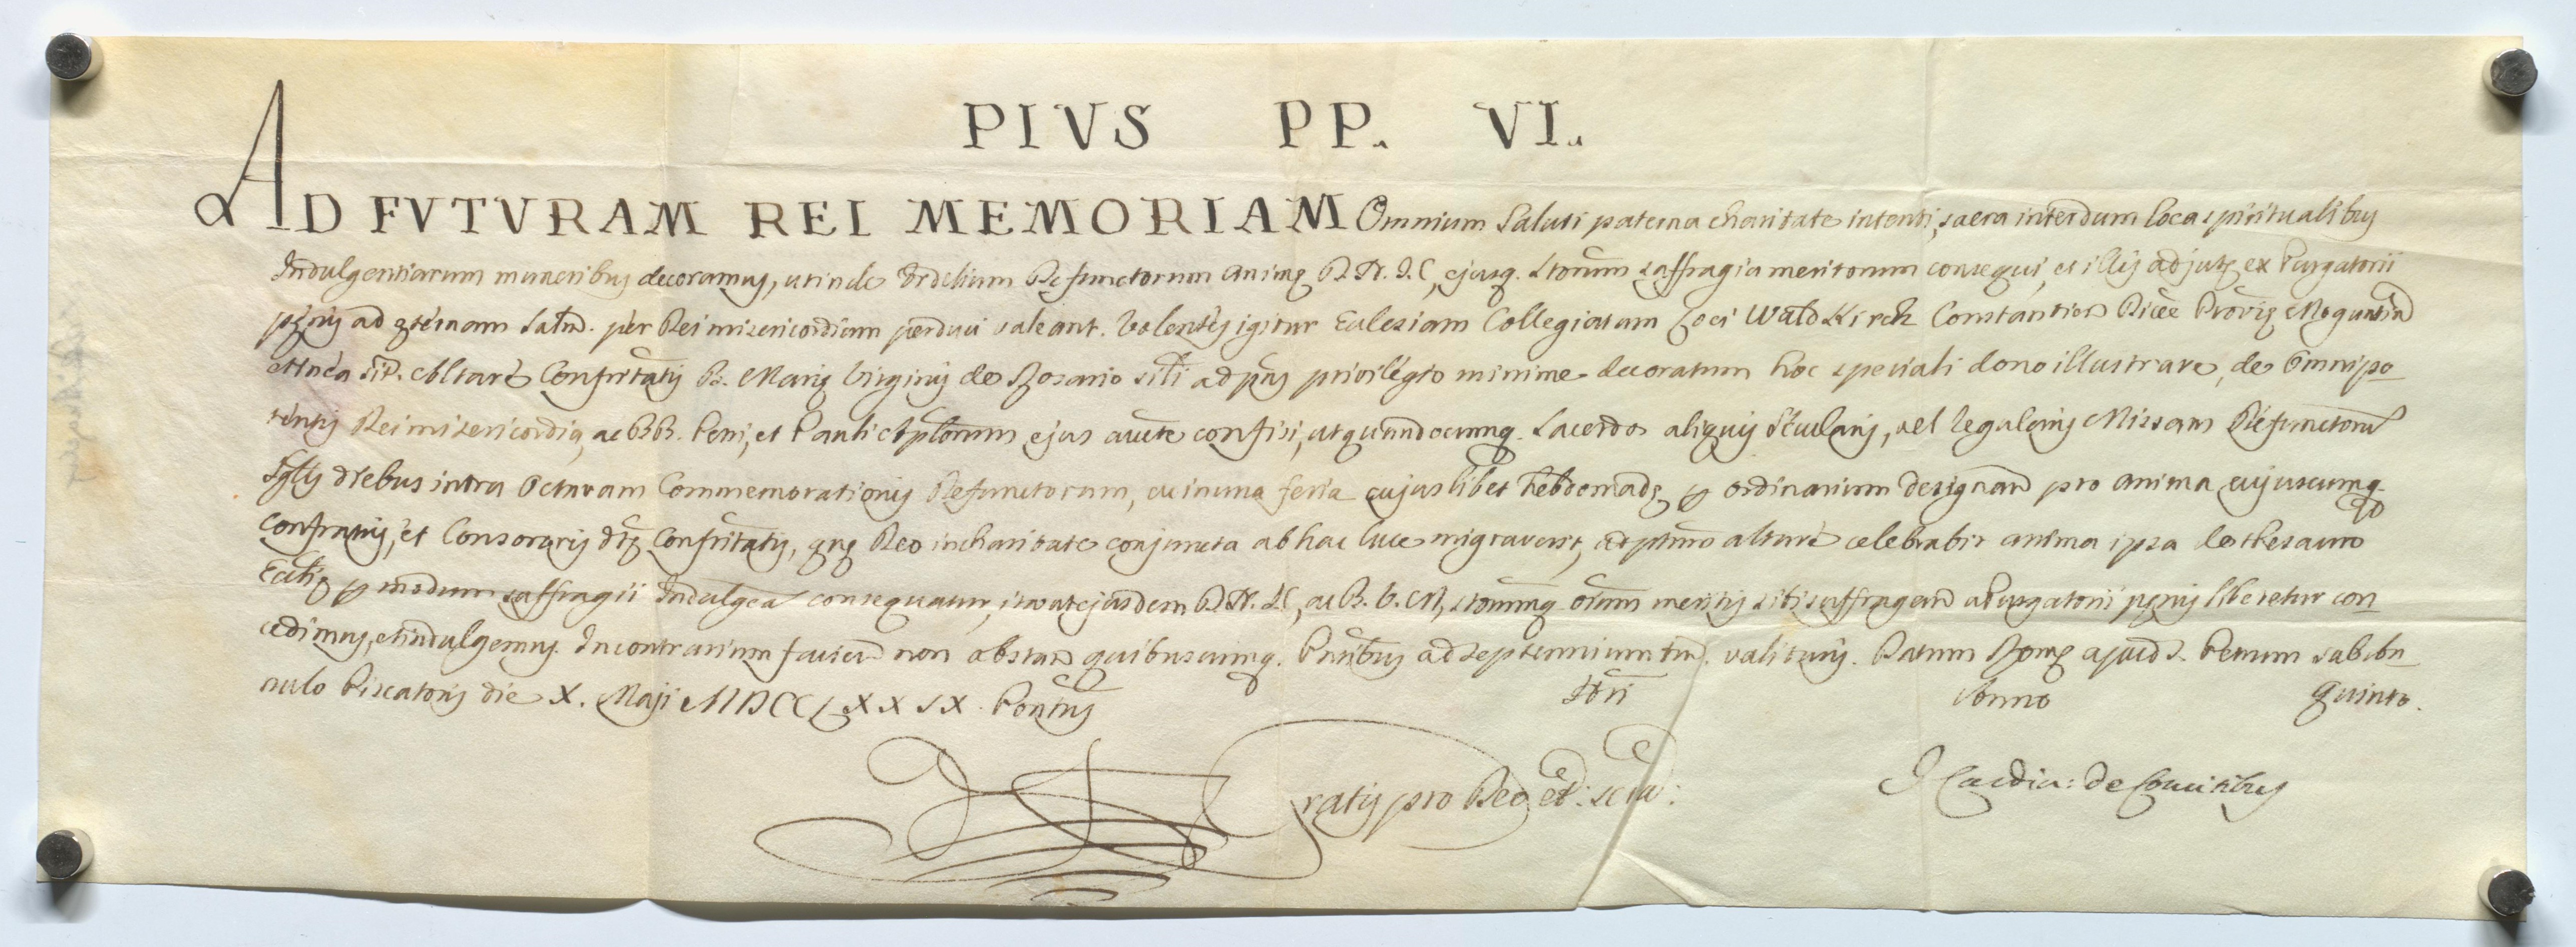 PIVS PP. VI.
AD FVTVRAM REI MEMORIAM Omnium Saluti paterna charitate intenti, sacra interdum loca spiritualibus
Indulgentiarum muneribus decoramus, ut inde Fidelium Defunctorum Animę D. N. J. C., ejusq. Storum suffragia meritorum consequi, et illis adjutę ex Purgatorii
pęnis ad ęternam Salm. per Dei misericordiam perduci valeant. Volentes igitur Eclesiam Collegiatam Loci WaldKirch Constantien Diœc Provię Moguntin
et in ea sit. Altare Confritatis B. Marię Virginis de Rosario siti ad pns privilegio minime decoratum hoc speciali dono illustrare, de Omnipo
tentis Dei misericordia, ac BB. Petri, et Pauli Aplorum ejus aucte confisi, ut quandocumq. Sacerdos aliquis Sćularis, vel Regularis Missam Defunctorum
Sglis diebus intra Octavam Commemorationis Defunctorum, ac in una feria cujuslibet hebdomadę p ordinarium designand pro anima cujuscumq.
Confratris, et Consororis dtę Confritatis, quę Deo in charitate conjuncta ab hac luce migraverit, ad pmum altare celebrabit anima ipsa de thesauro
Ecclię p modum suffragii Indulgea consequatur, ita ut ejusdem D. N. J. C., ac B. V. M., Storumq oium meritis sibi suffragan a Purgatorii pęnis liberetur con
cedimus, et indulgemus. In contrarium facien non obstan quibuscumq. Pntibus ad Septennium tm. valituris. Datum Romę apud S. Petrum sub An
nulo Piscatoris die X. Maji MDCCLXXIX. Pontus Ntri Anno Quinto.
Gratis pro Deo et: scra:
J Cardin: de Comitibus